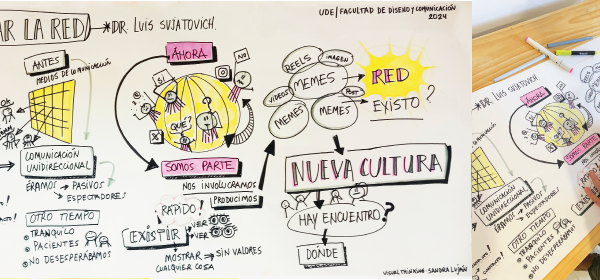 AR LA RED → *DR. LUIS SUJATOVICH.
UDE/FACULTAD DE DISEÑO Y COMUNICACIÓN
2024
ANTES
MEDIOS DE COMUNICACIÓN
OK
COMUNICACIÓN
UNIDIRECCIONAL
ÉRAMOS → PASIVOS
ESPECTADORES
OTRO TIEMPO
TRANQUILO
PACIENTES
NO DESESPERÁBAMOS
AHORA
SI
NO
QUÉ?
SOMOS PARTE
NOS INVOLUCRAMOS
PRODUCIMOS
RÁPIDO!
EXISTIR
VER
VER
MOSTRAR → SIN VALORES
CUALQUIER COSA
REELS
IMAGEN
MEMES
VIDEOS
POST
MEMES
MEMES
RED
EXISTO?
NUEVA CULTURA
HAY ENCUENTRO?
DÓNDE
VISUAL THINKING: SANDRA LUJÁN
*DR. LUIS SUJATOVICH
AHORA
QUÉ?
SOMOS PARTE
COMUNICACIÓN
UNIDIRECCIONAL
ÉRAMOS → PASIVOS
ESPECTADORES
OTRO TIEMPO
TRANQUILO
PACIENTES
NO DESESPERÁBAMOS
RÁPIDO!
EXISTIR
MOSTRAR
CUALQUIER COSA